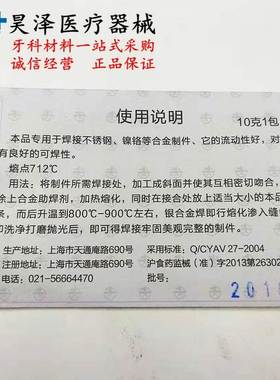 昊泽医疗器械
牙科材料一站式采购
诚信经营 正品保证
使用说明
10克1包
本品专用于焊接不锈钢、镍铬等合金制件、它的流动性好，对
有良好的可焊性。
熔点712℃
用法：将制件所需焊接处，加工成斜面并使其相互密切吻合，
涂上合金助焊剂，加热熔化，同时在接处放上适当大小的本品
条，而后升温到800℃-900℃左右，银合金焊即行熔化渗入缝
即洗净打磨抛光后，即可得焊接牢固美观完整的制件。
生产地址：上海市天通庵路690号
采用标准：Q/CYAV 27-2004
注册地址：上海市天通庵路690号
沪食药监械（准）字2013第26302
电话：021-56664470
201